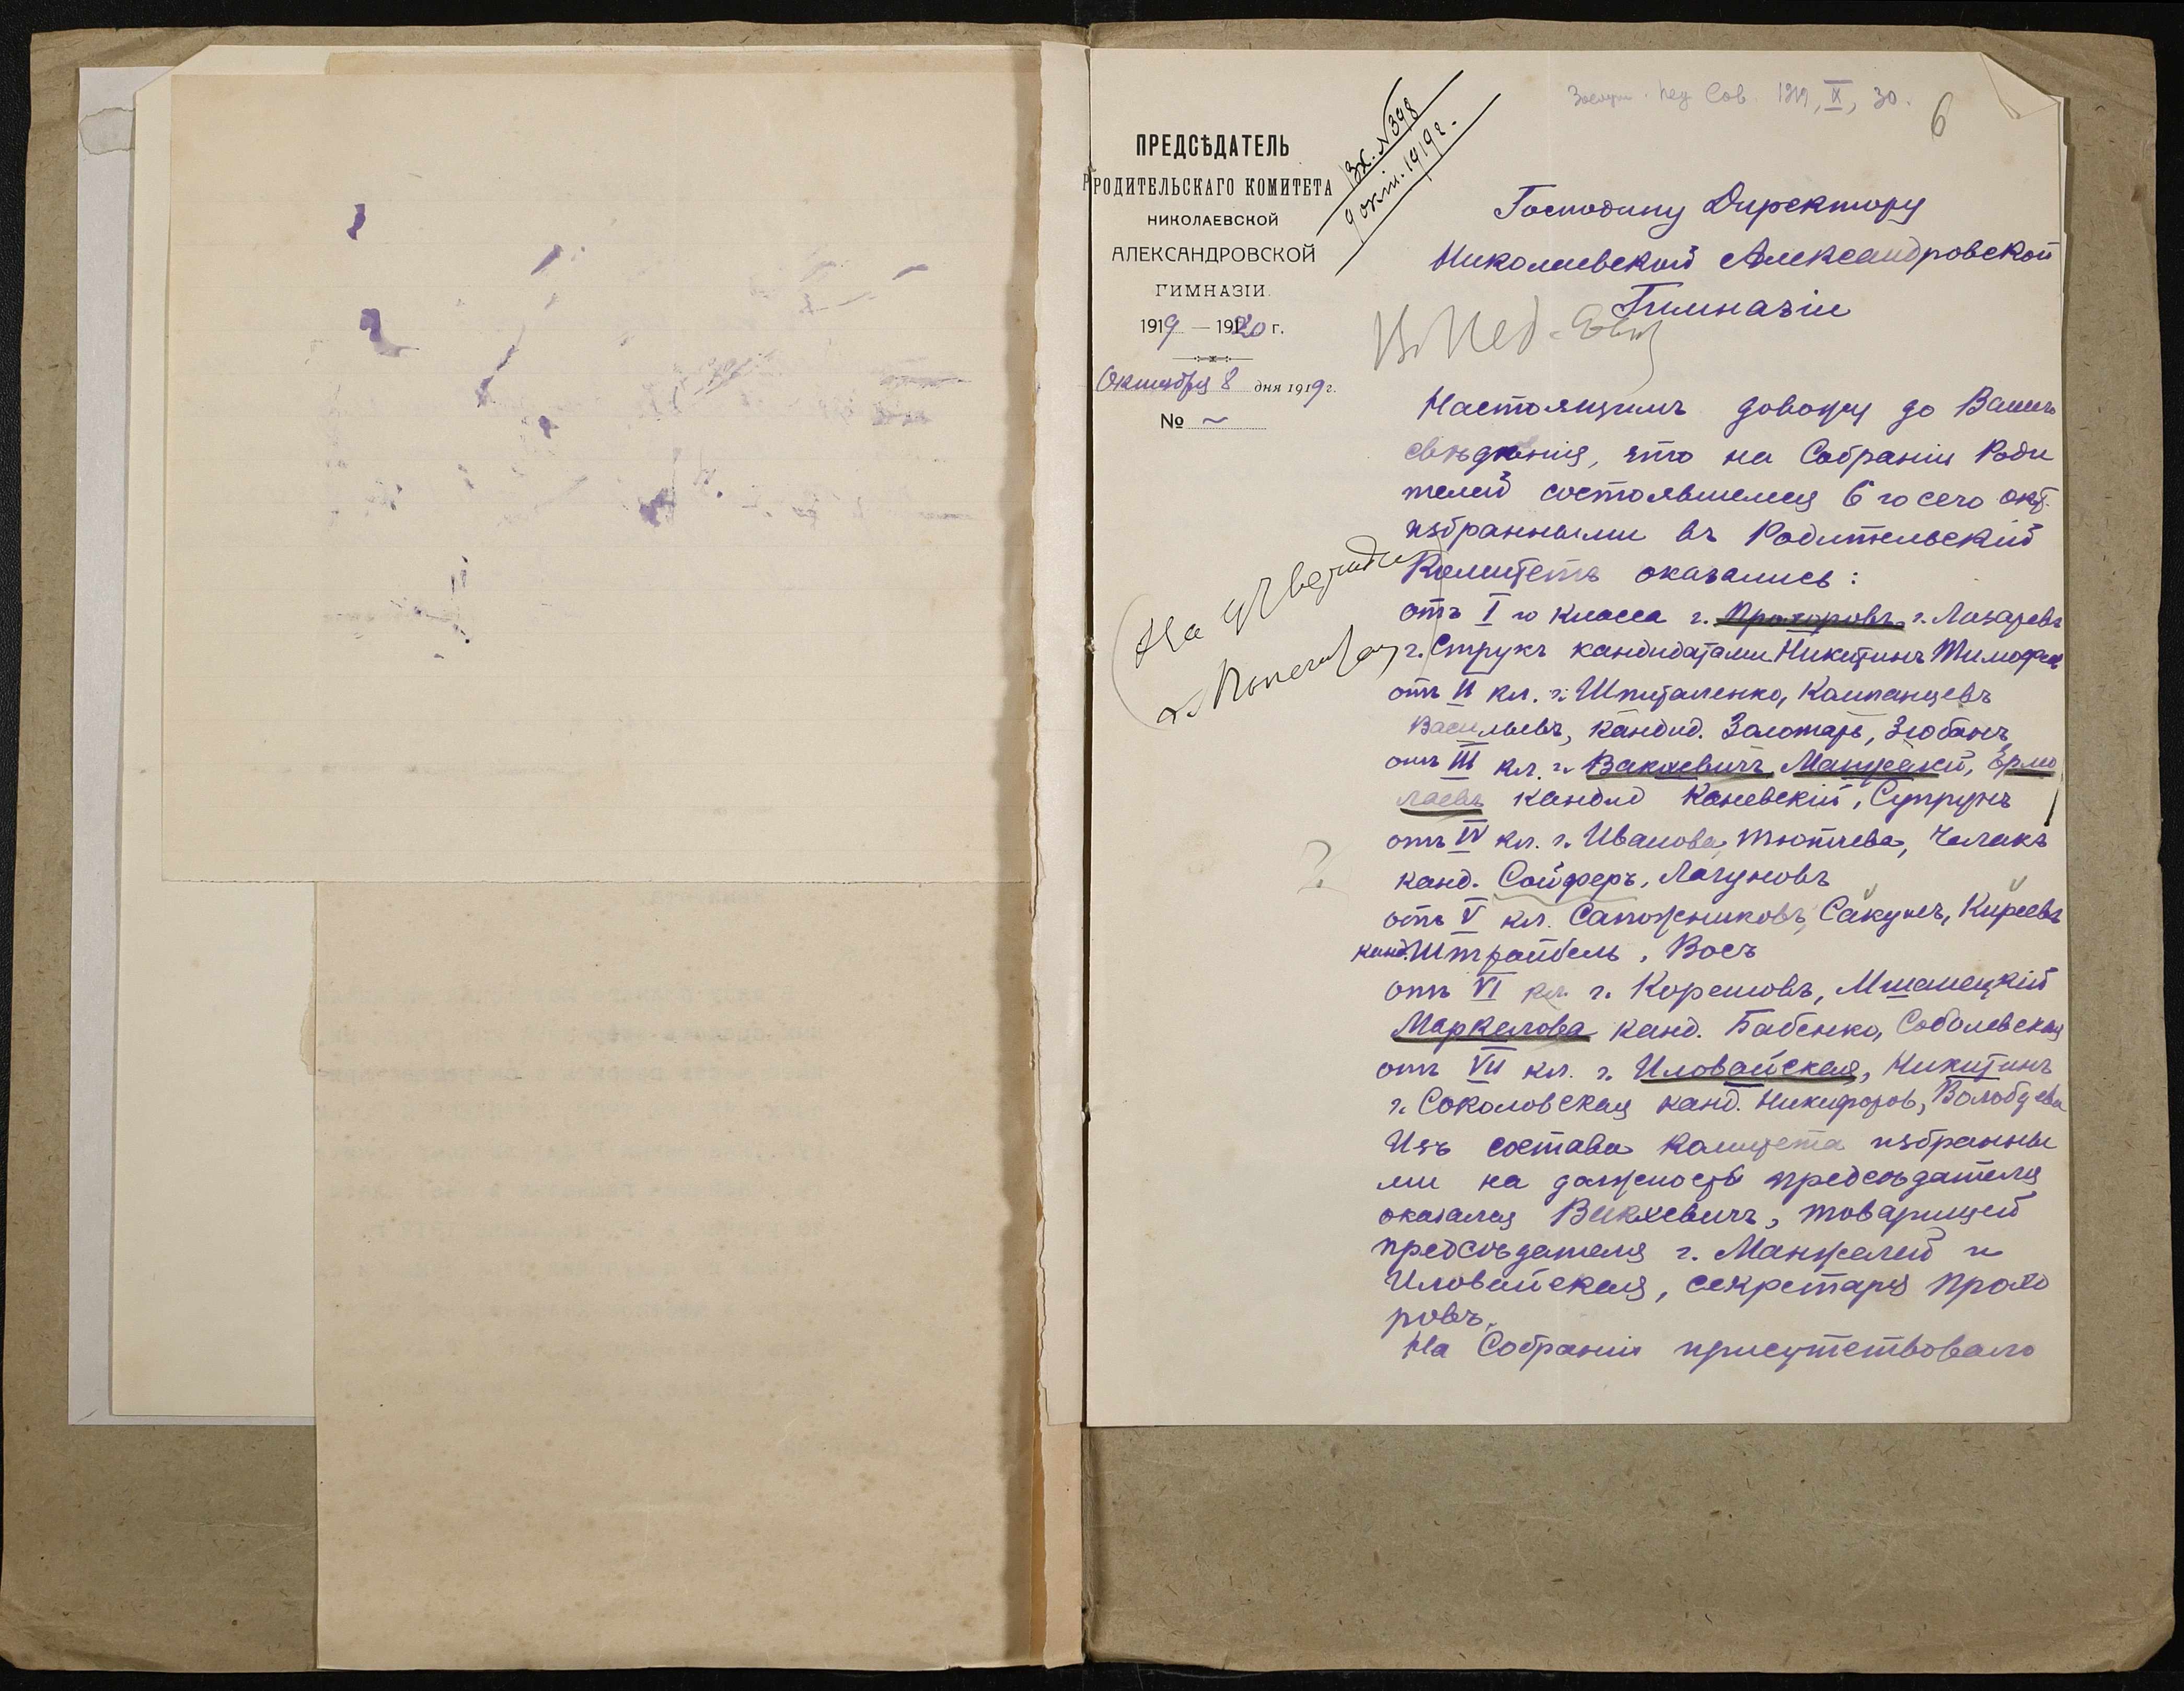 Пед Сов. 1919, X, 30.
6
ПРЕДСѢДАТЕЛЬ
РОДИТЕЛЬСКАГО КОМИТЕТА
НИКОЛАЕВСКОЙ
АЛЕКСАНДРОВСКОЙ
ГИМНАЗІИ.
1919 — 1920 г.
Октября 8 дня 1919 г.
№ ~
Вх. № 398
9 окт. 1919 г.
Господину Директору
Николаевской Александровской
Гимназіи
В Пед.
Настоящимъ довожу до Вашего
свѣдѣнія, что на Собраніи Роди
телей состоявшемся 6 го сего окт.
избранными въ Родительскій
Комитетъ оказались:
отъ I го класса г. Прохоровъ, г. Лазаревъ
г. Струкъ кандидатами Никитинъ Тимофеев
отъ II кл. г. Шпиталенко, Кампанцевъ
Васильевъ, кандид. Золотарь, Зюбанъ
отъ III кл. г. Вакхевичъ, Манжелей, Ермо
лаевъ кандид Каневскій, Супрунъ
отъ IV кл. г. Иванова, Тютчева, Чалакъ
канд. Сойферъ, Лагуновъ
?
отъ V кл. Сапожниковъ, Сакунъ, Киреевъ
канд. Штрайбель, Восъ
отъ VI кл. г. Корешовъ, Мшанецкій
Маркелова канд. Бабенко, Соболевская
отъ VII кл. г. Иловайская, Никитинъ
г. Соколовская канд. Никифоров, Волобуева
Изъ состава Комитета избранны
ми на должность предсѣдателя
оказался Вакхевичъ, товарищей
предсѣдателя г. Манжелей и
Иловайская, секретаря Прохо
ровъ.
На Собраніи присутствовало
На утвержден
Попечит